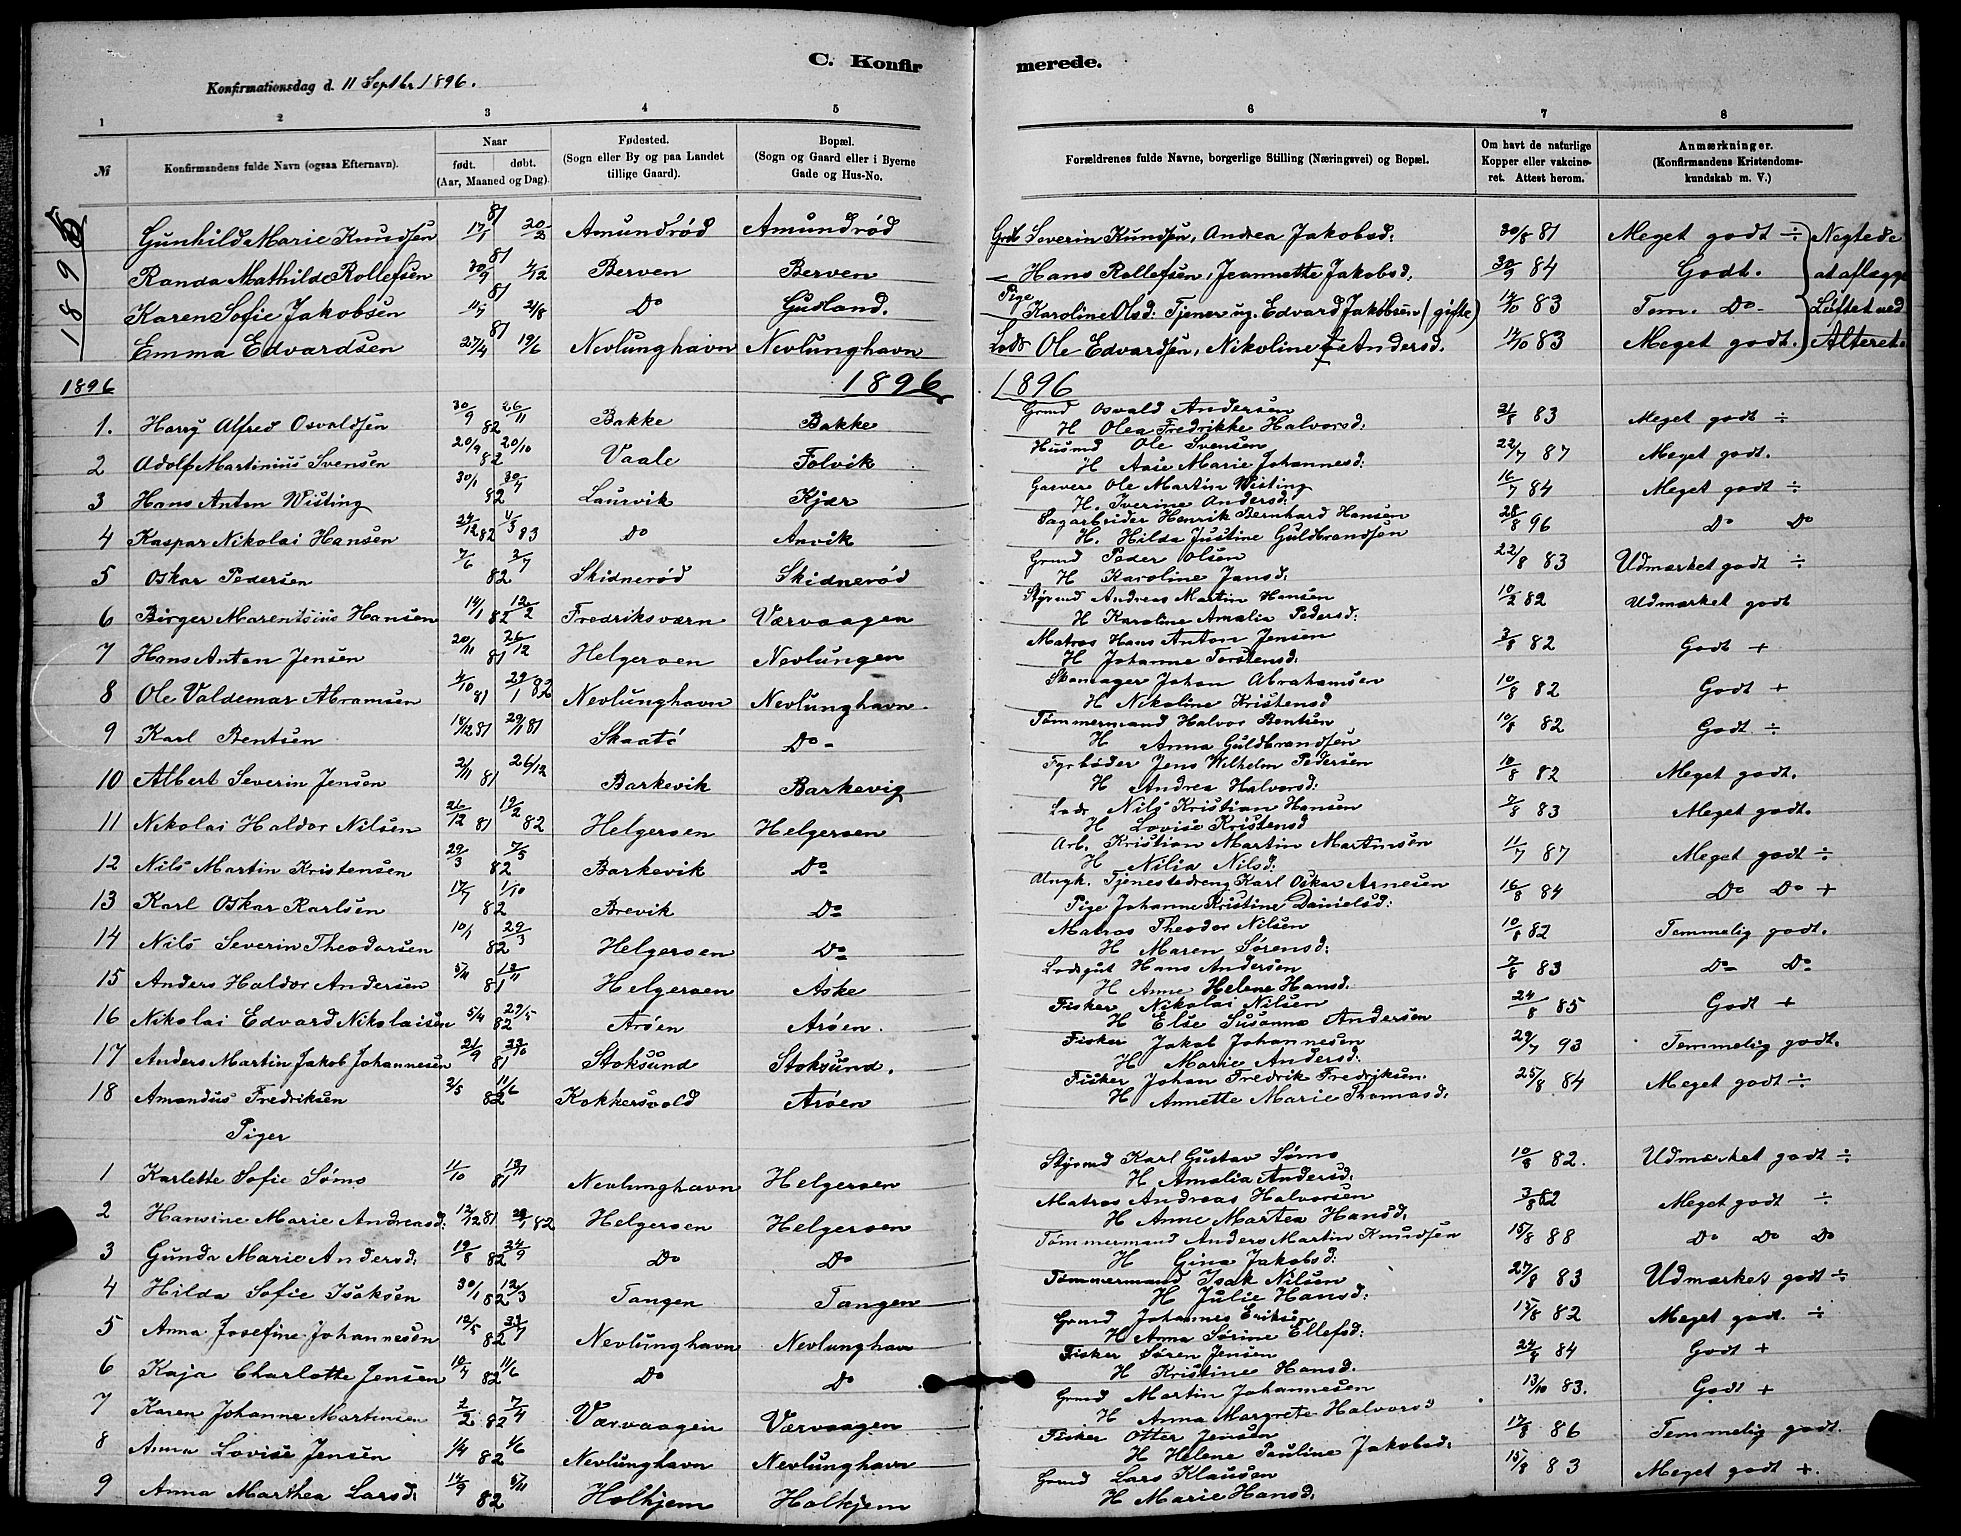 C. Konfirmerede.
Konfirmationsdag d. 11 Septbr 1896.
1 2 3 4 5 6 7 8
№ Konfirmandens fulde Navn (ogsaa Efternavn). Naar født. døbt. (Aar, Maaned og Dag). Fødested. (Sogn eller By og paa Landet tillige Gaard). Bopæl. (Sogn og Gaard eller i Byerne Gade og Hus-No. Forældrenes fulde Navne, borgerlige Stilling (Næringsvei) og Bopæl. Om havt de naturlige Kopper eller vakcineret. Attest herom. Anmærkninger. (Konfirmandens Kristendomskundskab m. V.)
Gunhild Marie Knudsen 81 17/1 20/2 Amundrød Amundrød Severin Kundsen, Andrea Jakobsd: 30/8 81 Meget godt ÷ Negtede
Randa Mathilde Rollefsen 81 30/9 4/12 Berven Berven — Hans Rollefsen, Jeannette Jakobsd. 30/9 84 Godt. at aflægge
Karen Sofie Jakobsen 81 21/8 Do Gudland. Pige Karoline Olsd: Tjener ug. Edvard Jakobsen (gifte) 14/10 83 Tem. Do- Løftet ved
Emma Edvardsen 81 27/4 19/6 Nevlunghavn Nevlunghavn Lods Ole Edvardsen, Nikoline Andersd. 14/10 83 Meget godt. Alteret.
1896 1896 1896
1. Harry Alfred Osvaldsen 30/9 82 26/11 Bakke Bakke Grmd Osvald Andersen
H Olea Fredrikke Halvorsd: 21/8 83 Meget godt ÷
2 Adolf Martinius Svensen 20/9 82 20/10 Vaale Folvik Husmd Ole Svensen
H Aase Marie Johannesd: 22/7 87 Meget godt.
3 Hans Anton Wisting 30/1 82 30/4 Laurvik Kjær Garver Ole Martin Wisting
H. Iverine Andersd: 16/7 84 Meget godt ÷
4 Kaspar Nikolai Hansen 24/12 82 4/3 83 Do Anvik Sagarbeider Henrik Bernhard Hansen
H. Hilda Justine Guldbrandsen 28/8 96 Do Do
5 Oskar Pedersen 7/6 82 2/7 Skidnerød Skidnerød Grmd Peder Olsen
H Karoline Jansd: 22/8 83 Udmærket godt ÷
6 Birger Marentsius Hansen 14/1 82 12/2 Fredriksværn Værvaagen Styrmd Andreas Martin Hansen
H Karoline Amalia Pedersd: 10/2 82 Udmærket godt
7 Hans Anton Jensen 20/11 81 26/12 Helgeroen Nevlungen Matros Hans Anton Jensen
H Johanne Torstensd: 3/8 82 Godt +
8 Ole Valdemar Abramsen 4/10 81 29/1 82 Nevlunghavn Nevlunghavn Skomager Johan Abrahamsen
H Nikoline Kristensd 10/8 82 Godt +
9 Karl Bentsen 18/12 81 29/11 81 Skaatø Do- Tømmermand Halvor Bentsen
H Anna Guldbrandsen 10/8 82 Godt ÷
10 Albert Severin Jensen 2/11 81 26/12 Barkevik Barkevig Fyrbøder Jens Wilhelm Pedersen
H Andrea Halvorsd: 10/8 82 Meget godt.
11 Nikolai Haldor Nilsen 26/12 81 19/2 82 Helgeroen Helgeroen Lods Nils Kristian Hansen
H Lovise Kristensd 7/8 83 Meget godt.
12 Nils Martin Kristensen 29/3 82 7/5 Barkevik Do Arb. Kristian Martin Martinsen
H Nilia Nilsd: 11/7 87 Meget godt ÷
13 Karl Oskar Karlsen 17/7 82 1/10 Brevik Do Ungk. Tjenestedreng Karl Oskar Arnesen
Pige Johanne Kristine Danielsd: 16/8 84 Do Do +
14 Nils Severin Theodorsen 10/1 82 29/3 Helgeroen Do Matros Theodor Nilsen
H Maren Sørensd: 10/8 82 Temmelig godt.
15 Anders Haldor Andersen 81 13/11 Helgeroen Aske Lodsgut Hans Andersen
H Anne Helene Hansd: 7/8 83 Do Do
16 Nikolai Edvard Nikolaisen 5/4 82 29/5 Arøen Arøen. Fisker Nikolai Nilsen
H Else Susanna Andersen 24/8 85 Godt +
17 Anders Martin Jakob Johannesen 21/9 81 23/10 Stoksund Stoksund. Fisker Jakob Johannesen
H Marie Andersd: 29/7 93 Temmelig godt.
18 Amandus Fredriksen 3/5 82 11/6 Kokkersvold Arøen Fisker Johan Fredrik Fredriksen
H Annette Marie Thomasd: 25/8 84 Meget godt ÷
Piger
1 Karlette Sofie Sømo 11/10 81 Nevlunghavn Helgeroen Styrmd Karl Gustav Sømo
H Amalia Andersd. 10/8 82. Udmærket godt ÷
2 Hansine Marie Andreasd. 12/12 81 29/1 82 Helgeroen Helgeroen Matros Andreas Halvorsen
H Anne Martea Hansd, 3/8 82 Meget godt ÷
3 Gunda Marie Andersd: 19/8 82 24/9 Do Do Tømmermand Anders Martin Knudsen
H Gina Jakobsd: 15/8 88 Do Do Do
4 Hilda Sofie Isaksen 30/1 82 12/3 Tangen Tangen Tømmermand Isak Nilsen
H Julie Hansd: 27/8 83 Udmærket godt ÷
5 Anna Josefine Johannesen 12/5 82 23/7 Nevlunghavn Nevlunghavn Grmd Johannes Eriksen
H Anna Sørine Ellefsd: 15/8 82 Meget godt. ÷
6 Kaja Charlotte Jensen 10/4 82 11/6 Do Do Fisker Søren Jensen
H Kristine Hansd. 24/8 84 Godt +
7 Karen Johanne Martinsen 2/2 82 7/4 Værvaagen Værvaagen Grmd Martin Johannesen
H Anna Margrete Halvorsd 13/10 83. Godt +
8 Anna Lovise Jensen 1/4 82 4/6 Nevlunghavn Nevlunghavn Fisker Otter Jensen
H Helene Pauline Jakobsd: 17/8 86 Temmelig godt.
9 Anna Marthea Larsd: 14/9 82 5/11 Holkjem Holkjem Grmd Lars Klausen
H Marie Hansd: 15/8 83 Meget godt +.